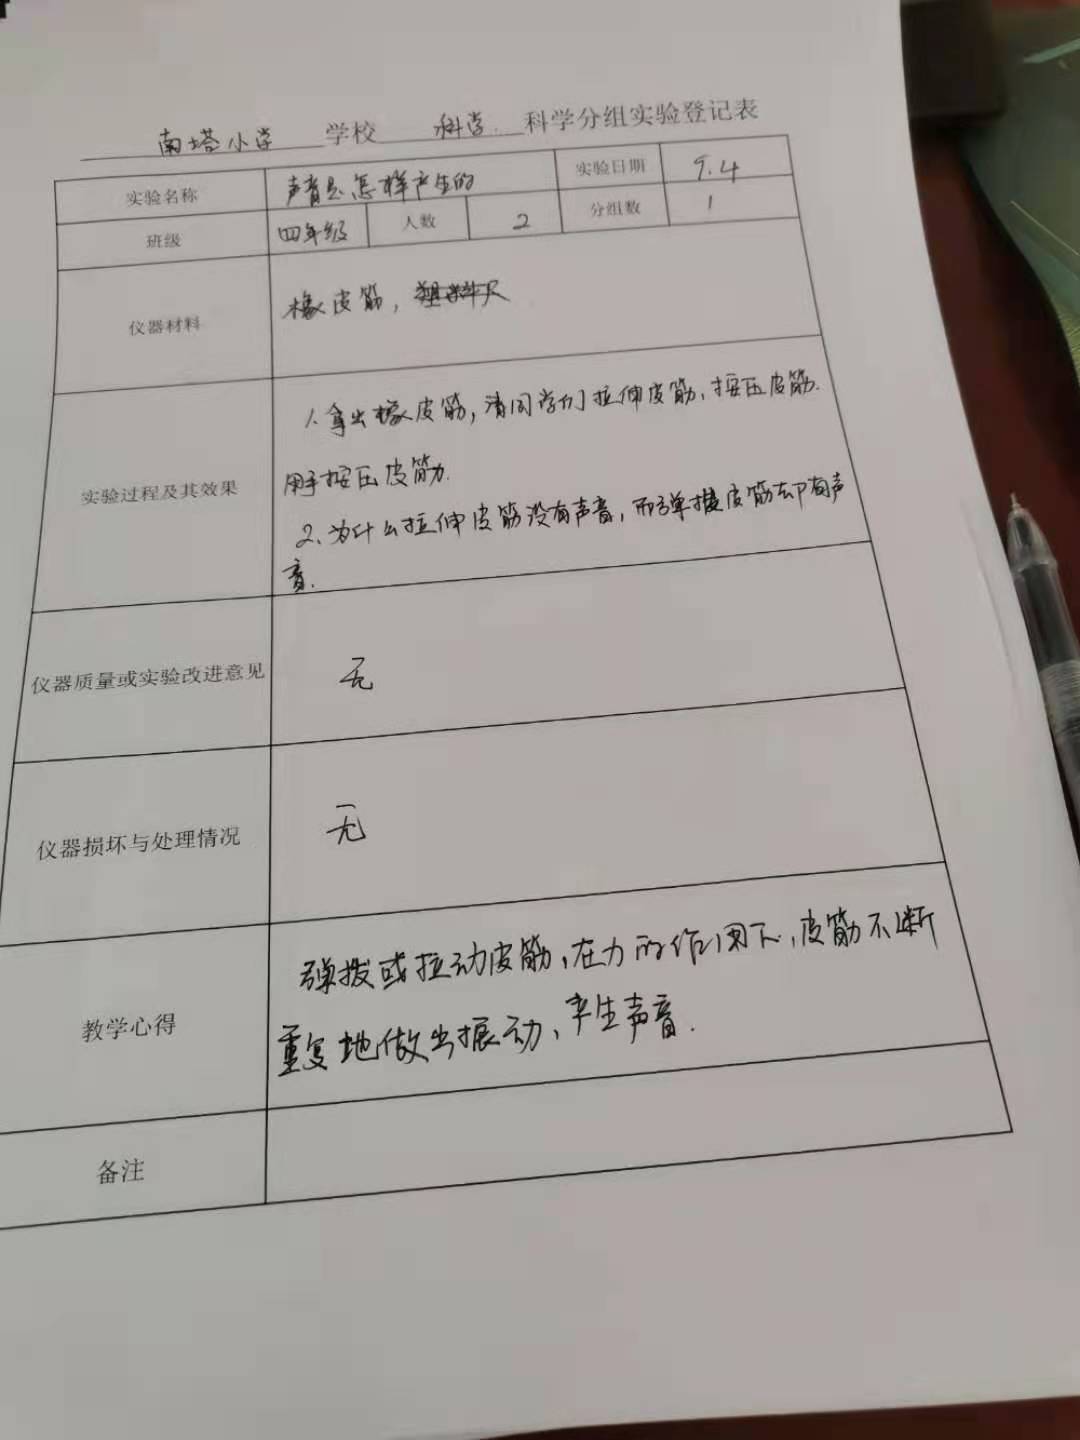 南塔小学 学校 科学 科学分组实验登记表
实验名称 声音是怎样产生的 实验日期 9.4
班级 四年级 人数 2 分组数 1
仪器材料 橡皮筋，塑料尺
1、拿出橡皮筋，请同学们拉伸皮筋，按压皮筋.
实验过程及其效果 用手按压皮筋.
2、为什么拉伸皮筋没有声音，而弹拨皮筋却有声
音.
仪器质量或实验改进意见 无
仪器损坏与处理情况 无
弹拨或拉动皮筋，在力的作用下，皮筋不断
教学心得 重复地做出振动、产生声音.
备注